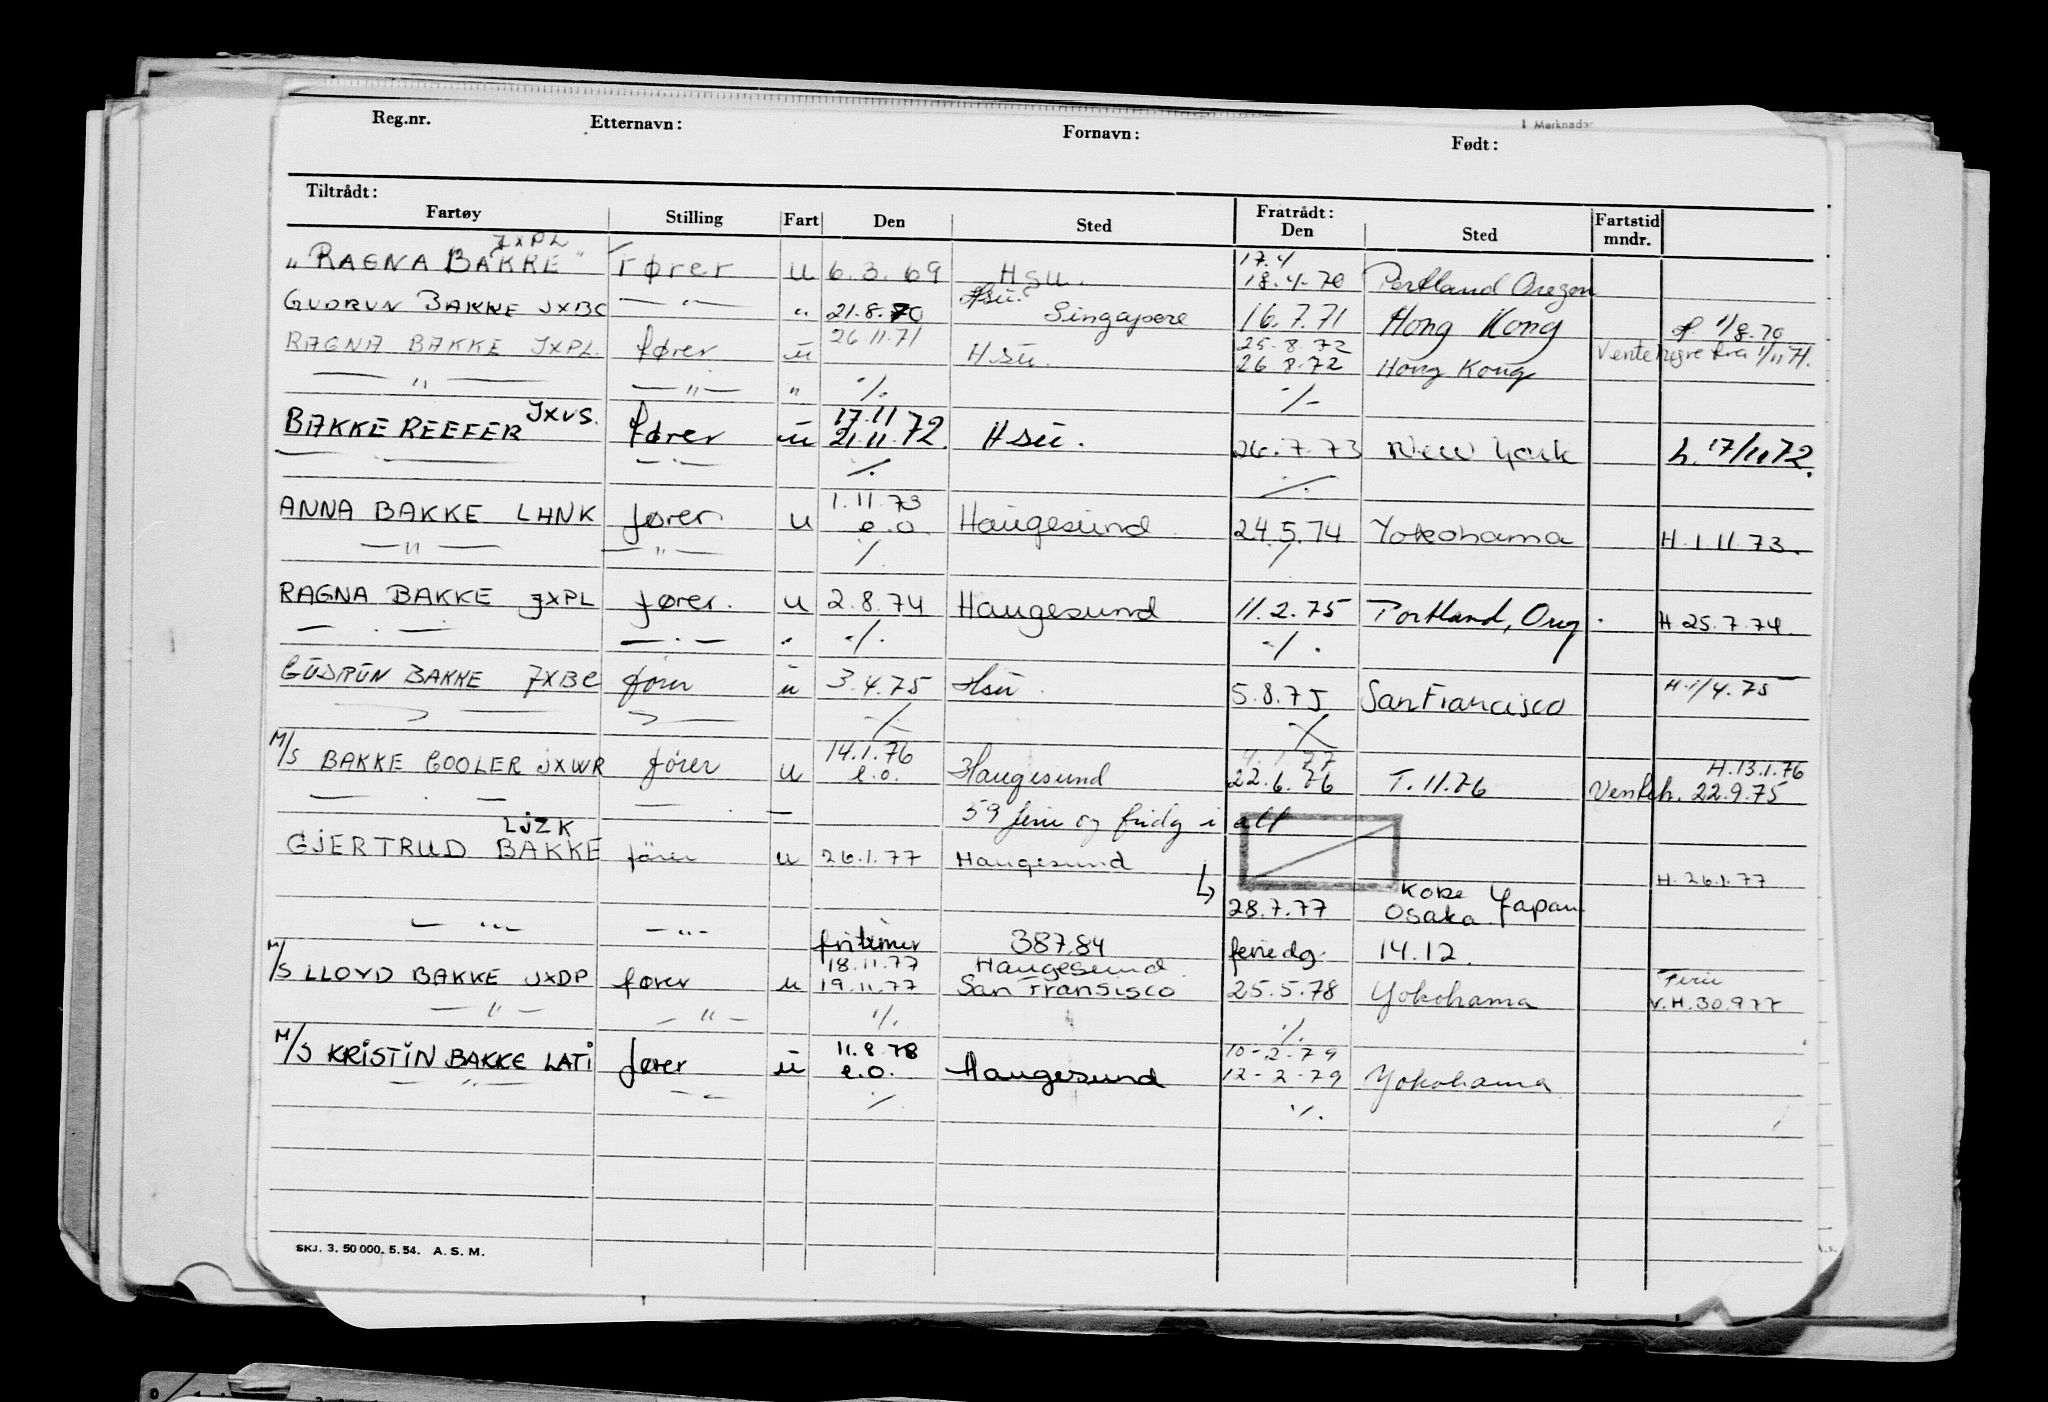 Merknader
Reg.nr. Etternavn: Fornavn: Født:
Tiltrådt: Fratrådt:
Fartøy Stilling Fart Den Sted Den Sted Fartstid mndr.
JXPL 17.4
"RAGNA BAKKE" Fører u 6.3.69 Hsu. 18.4.70 Portland Oregon
Hsu.
GUDRUN BAKKE JXBC —"— " 21.8.70 Singapore 16.7.71 Hong Kong 1/8.70
26.11.71 25.8.72
RAGNA BAKKE JXPL. fører u Hsu. 26.8.72 Hong Kong Ventehyre fra 1/11 71.
—"— —"— " ·/. ·/-
JXVS. 17.11
BAKKE REEFER fører u 21.11.72. Hsu. 26.7.73 New York h. 17/11 72.
— — —·— ·/. ·/.
1.11.73
ANNA BAKKE LHNK fører u e.o. Haugesund 24.5.74 Yokohama H.1.11.73.
—"— —"— ·/. ·/
RAGNA BAKKE JXPL fører. u 2.8.74 Haugesund 11.2.75 Portland, Oreg. H.25.7.74.
— · — —·— " ·/. ·/.
GUDRUN BAKKE JXBC fører u 3.4.75 Hsu. 5.8.75 San Francisco H.1/4.75
·/. ·/.
14.1.76 4.1.77 H.13.1.76
M/S BAKKE COOLER JXWR fører u e.o. Haugesund 22.6.76 T.11.76 Venteh. 22.9.75
— · — — — 59 ferie og fridg i alt
LJZK
GJERTRUD BAKKE fører u 26.1.77 Haugesund H.26.1.77
Kobe
28.7.77 Osaka Japan
—"— —"— fritimer 387.84 feriedg. 14.12.
18.11.77 Haugesund Ferie
M/S LLOYD BAKKE JXDP fører u 19.11.77 San Fransisco 25.5.78 Yokohama V.H.30.9.77
—"— —"— ·/. ·/.
11.8.78 10-2-79
M/S KRISTIN BAKKE LATI fører u e.o. Haugesund 12-2-79 Yokohama
—"— —"— ·/. ·/.
SKJ. 3. 50 000. 5. 54. A. S. M.